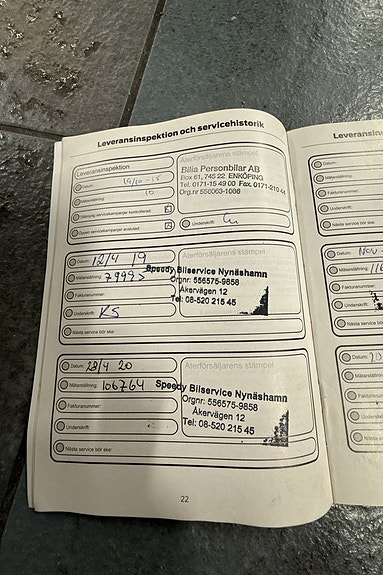 Leveransinspektion och servicehistorik
Leveransinspektion
Datum: 19/10 - 15
Mätarställning: 10
Återförsäljarens stämpel
Bilia Personbilar AB
Box 61, 745 22 ENKÖPING
Tel. 0171-15 49 00 Fax. 0171-210 44
Org.nr 556063-1086
Underskrift:
Datum: 12/4 19
Mätarställning: 79995
Fakturanummer:
Underskrift: KS
Nästa service bör ske:
Återförsäljarens stämpel
Speedy Bilservice Nynäshamn
Orgnr: 556575-9858
Åkervägen 12
Tel: 08-520 215 45
Datum: 28/4 20
Mätarställning: 106764
Fakturanummer:
Underskrift:
Nästa service bör ske:
Återförsäljarens stämpel
Speedy Bilservice Nynäshamn
Orgnr: 556575-9858
Åkervägen 12
Tel: 08-520 215 45
22
Datum:
Mätarställning:
Fakturanummer:
Underskrift:
Datum: NOV
Mätarställning:
Fakturanummer:
Underskrift:
Nästa service bör
Datum:
Mätarställning
Fakturanummer
Underskrift:
Nästa service